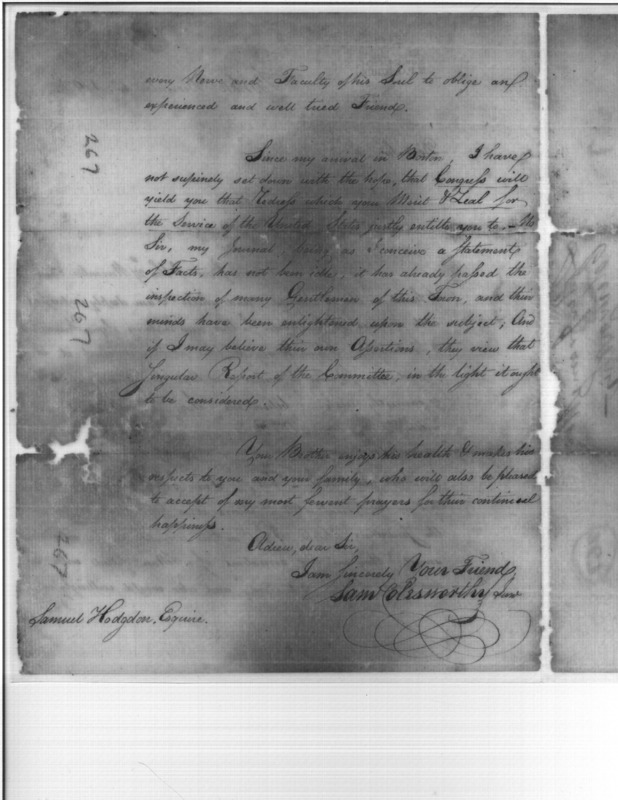 every Nerve and Faculty of his Soul to oblige an
experienced and well tried Friend.
Since my arrival in Boston, I have
not supinely set down with the hope, that Congress will
yield you that Redress which your Merit & Zeal for
the Service of the United States justly entitles you to.
Sir, my Journal being as I conceive a Statement
of Facts, has not been idle, it has already passed the
inspection of many Gentlemen of this Town, and their
minds have been enlightened upon the subject, And
if I may believe their own Assertions, they view that
Singular Report of the Committee, in the light it ought
to be considered.
Your Brother enjoys his health & makes his
respects to you and your family, who will also be pleased
to accept of my most fervent prayers for their continual
happiness.
Adieu, dear Sir,
I am Sincerely Your Friend,
Sam Colesworthy Junr
Samuel Hodgdon, Esquire.
267
267
267